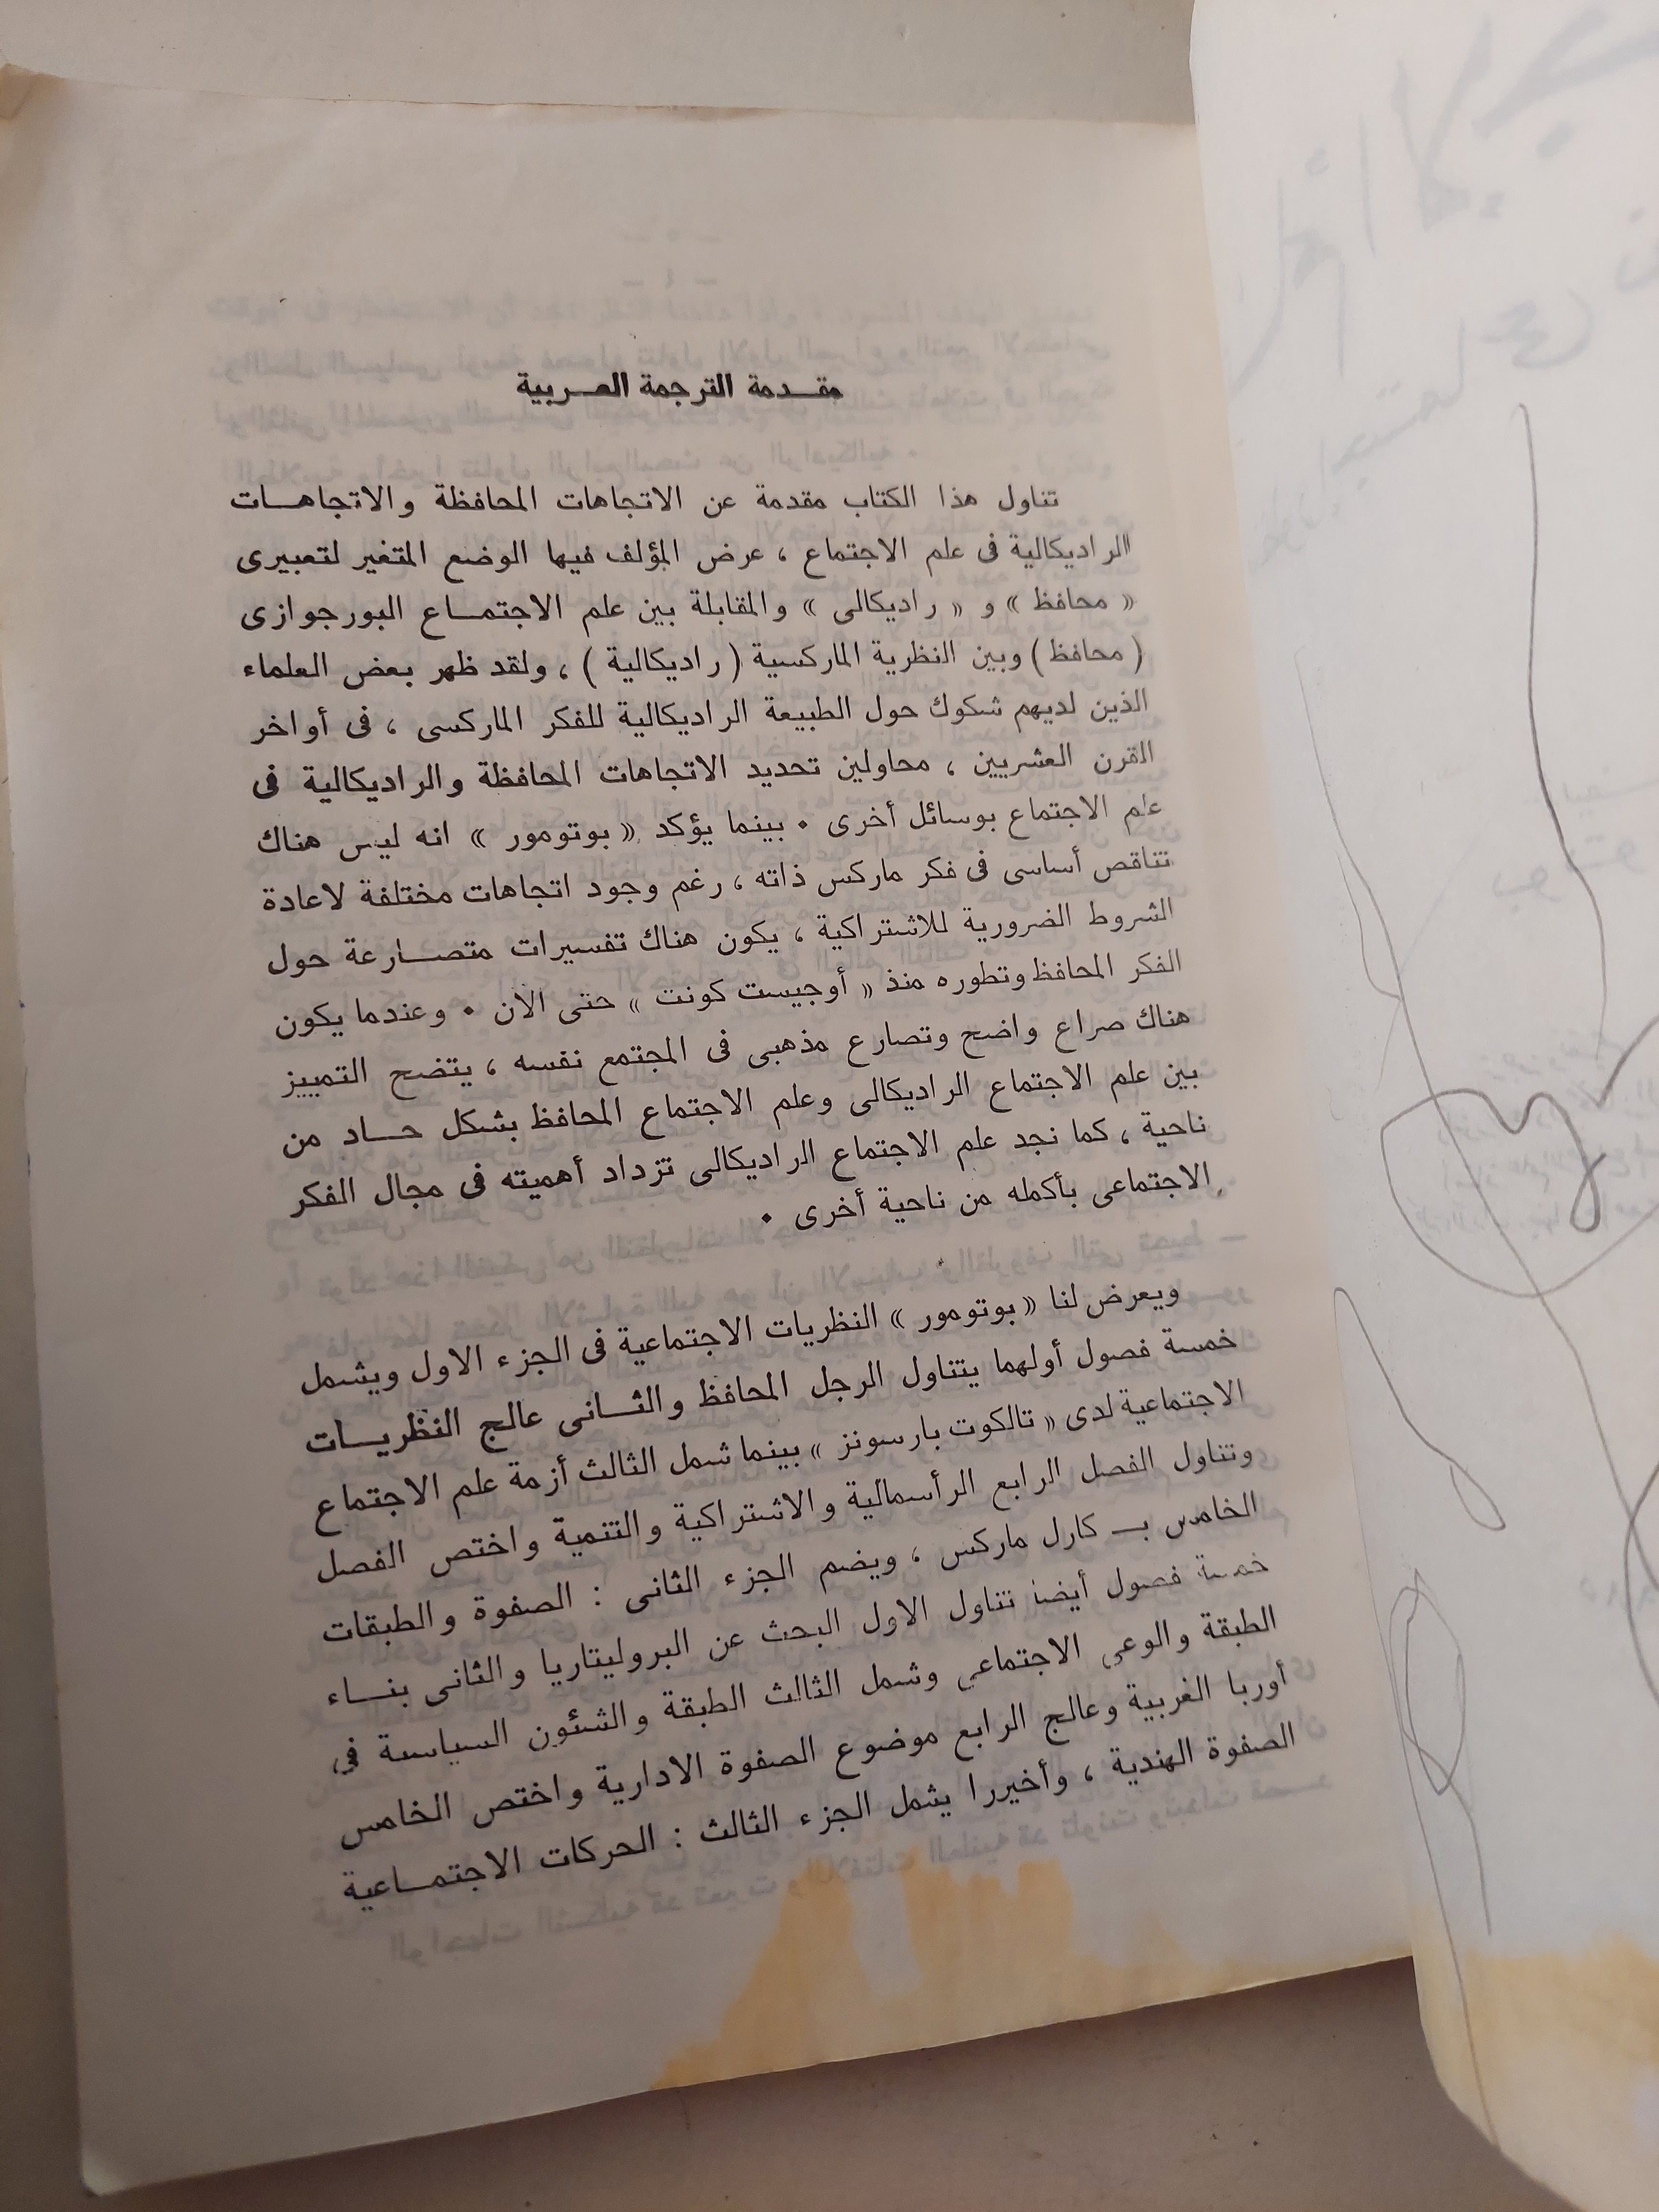 مقدمة الترجمة العربية
تناول هذا الكتاب مقدمة عن الاتجاهات المحافظة والاتجاهات
الراديكالية فى علم الاجتماع ، عرض المؤلف فيها الوضع المتغير لتعبيرى
« محافظ » و « راديكالى » والمقابلة بين علم الاجتماع البورجوازى
( محافظ ) وبين النظرية الماركسية ( راديكالية ) ، ولقد ظهر بعض العلماء
الذين لديهم شكوك حول الطبيعة الراديكالية للفكر الماركسى ، فى أواخر
القرن العشريين ، محاولين تحديد الاتجاهات المحافظة والراديكالية فى
علم الاجتماع بوسائل أخرى . بينما يؤكد « بوتومور » انه ليس هناك
تناقص أساسى فى فكر ماركس ذاته ، رغم وجود اتجاهات مختلفة لاعادة
الشروط الضرورية للاشتراكية ، يكون هناك تفسيرات متصارعة حول
الفكر المحافظ وتطوره منذ « أوجيست كونت » حتى الان . وعندما يكون
هناك صراع واضح وتصارع مذهبى فى المجتمع نفسه ، يتضح التمييز
بين علم الاجتماع الراديكالى وعلم الاجتماع المحافظ بشكل حاد من
ناحية ، كما نجد علم الاجتماع الراديكالى تزداد أهميته فى مجال الفكر
الاجتماعى بأكمله من ناحية أخرى .
ويعرض لنا « بوتومور » النظريات الاجتماعية فى الجزء الاول ويشمل
خمسة فصول أولهما يتناول الرجل المحافظ والثانى عالج النظريات
الاجتماعية لدى « تالكوت بارسونز » بينما شمل الثالث أزمة علم الاجتماع
وتناول الفصل الرابع الرأسمالية والاشتراكية والتنمية واختص الفصل
الخامس بـ كارل ماركس ، ويضم الجزء الثانى : الصفوة والطبقات
خمسة فصول أيضا تناول الاول البحث عن البروليتاريا والثانى بناء
الطبقة والوعى الاجتماعى وشمل الثالث الطبقة والشئون السياسة فى
أوربا الغربية وعالج الرابع موضوع الصفوة الادارية واختص الخامس
الصفوة الهندية ، وأخيررا يشمل الجزء الثالث : الحركات الاجتماعية